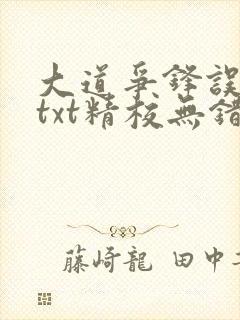 大道爭鋒誤
txt精校無錯
藤崎龍 田中